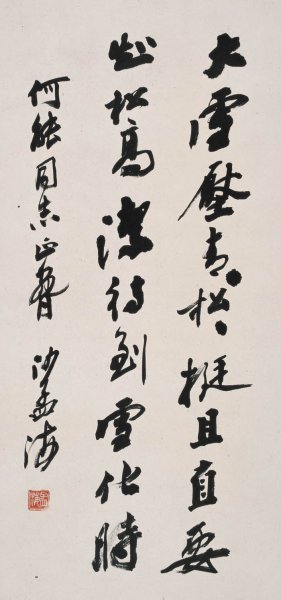 大雪壓青、松、挺且直要
知松高潔待到雪化時
何能同志正 沙孟海